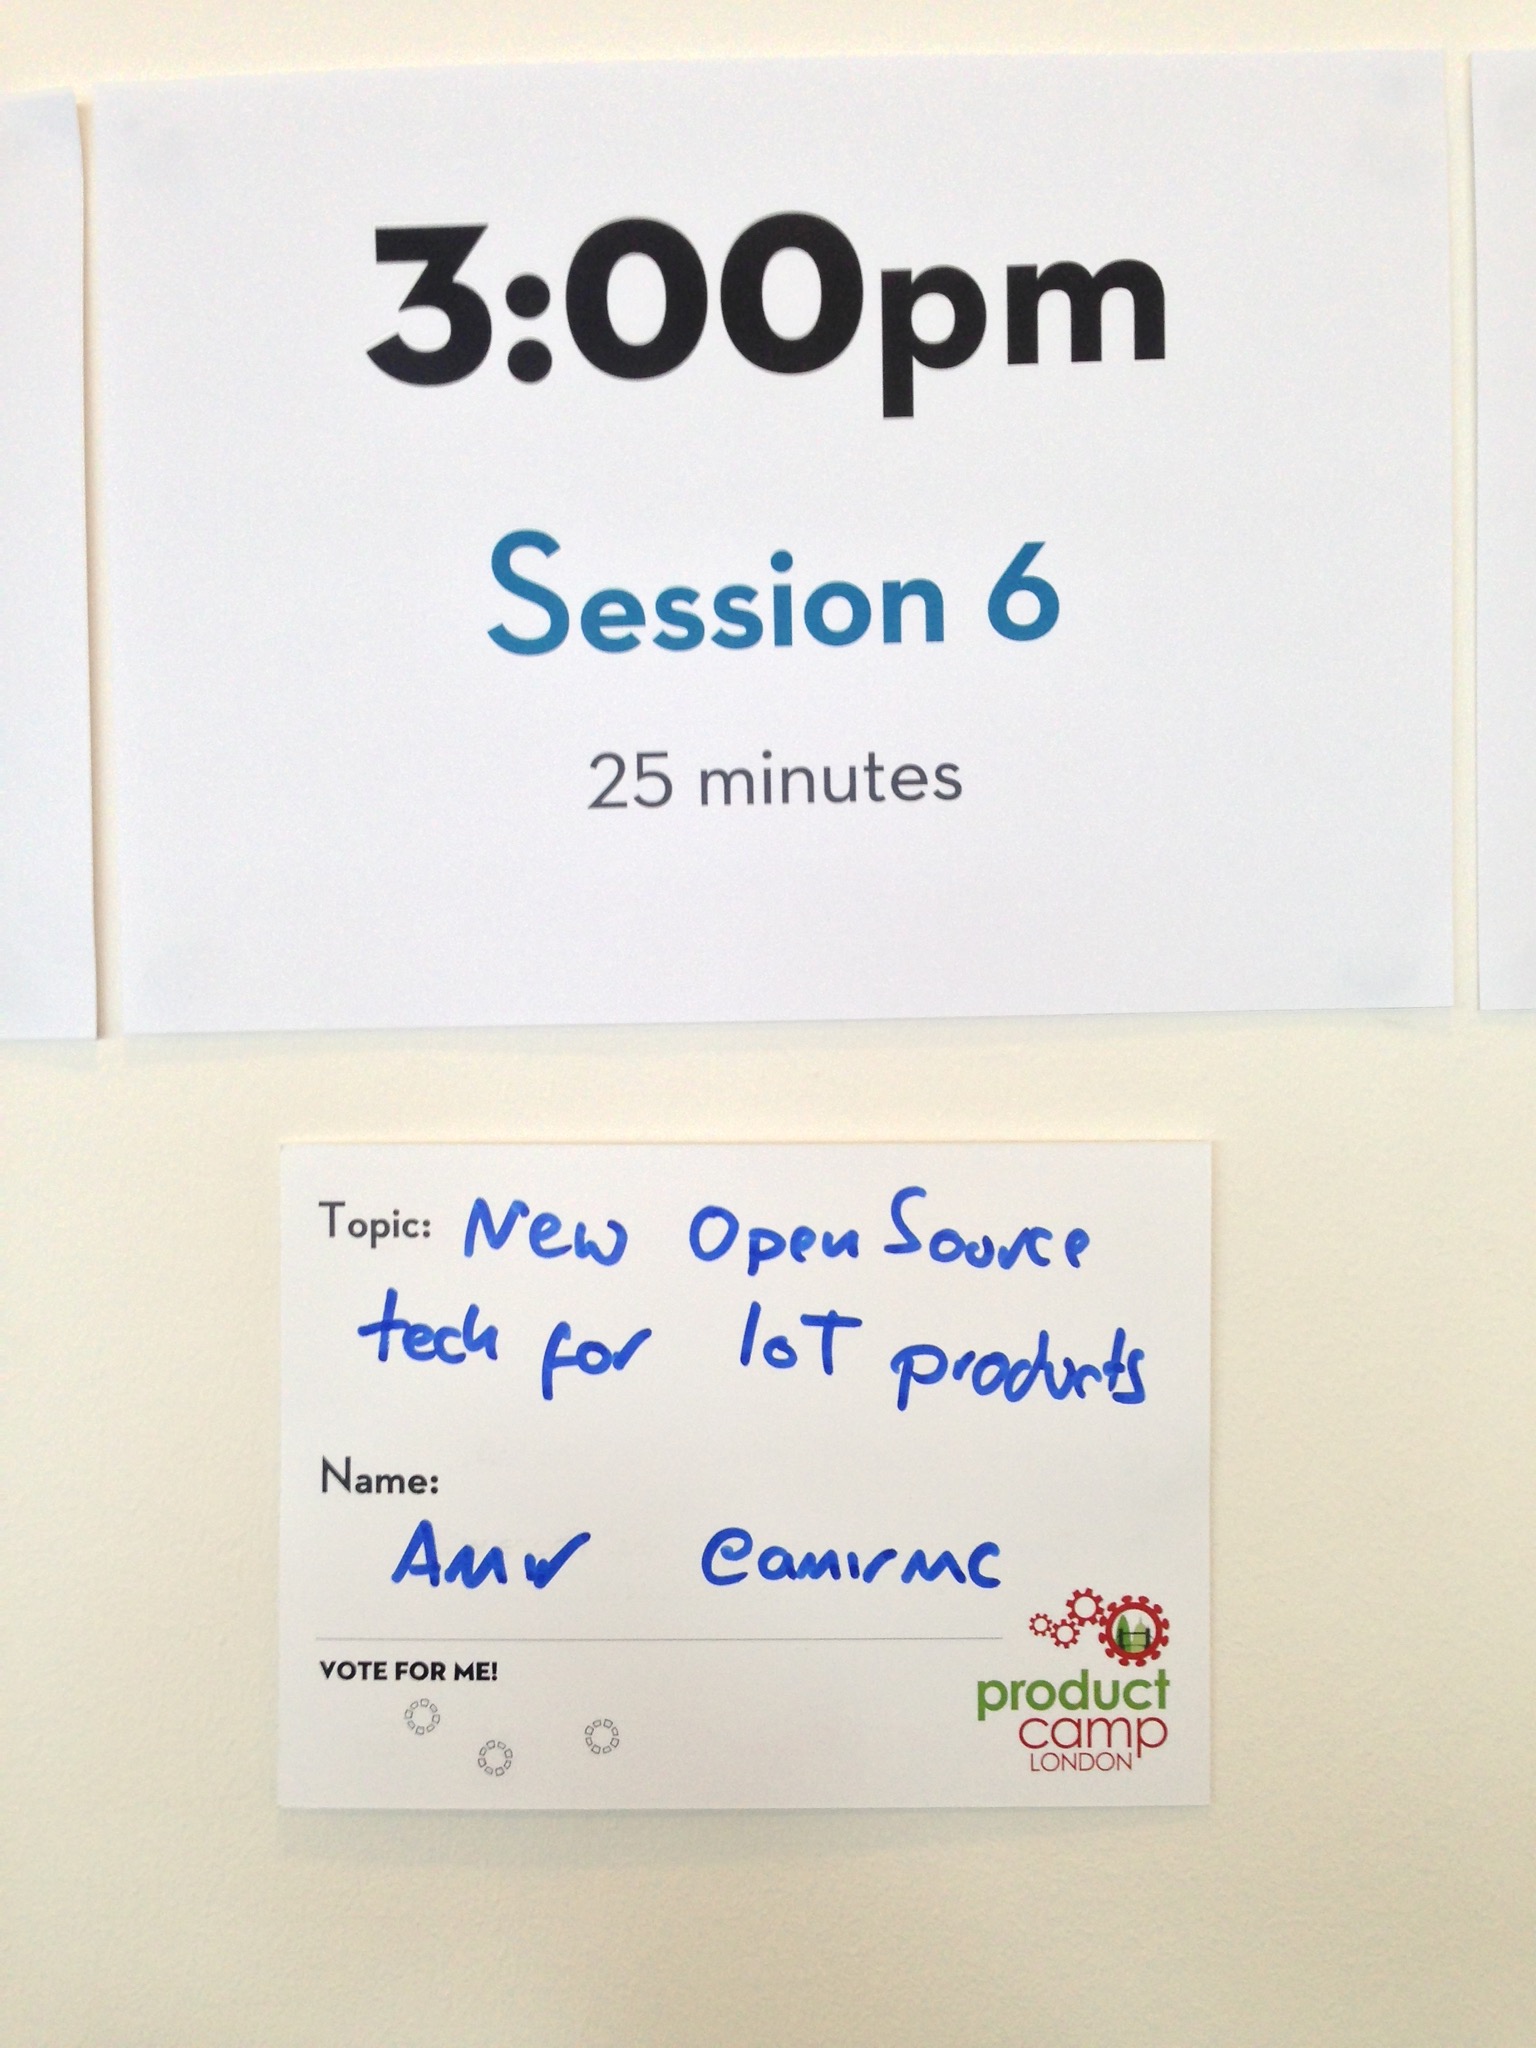 3:00pm
Session 6
25 minutes
Topic: New Open Source
tech for IoT products
Name:
Amir @amirmc
VOTE FOR ME!
product
camp
LONDON